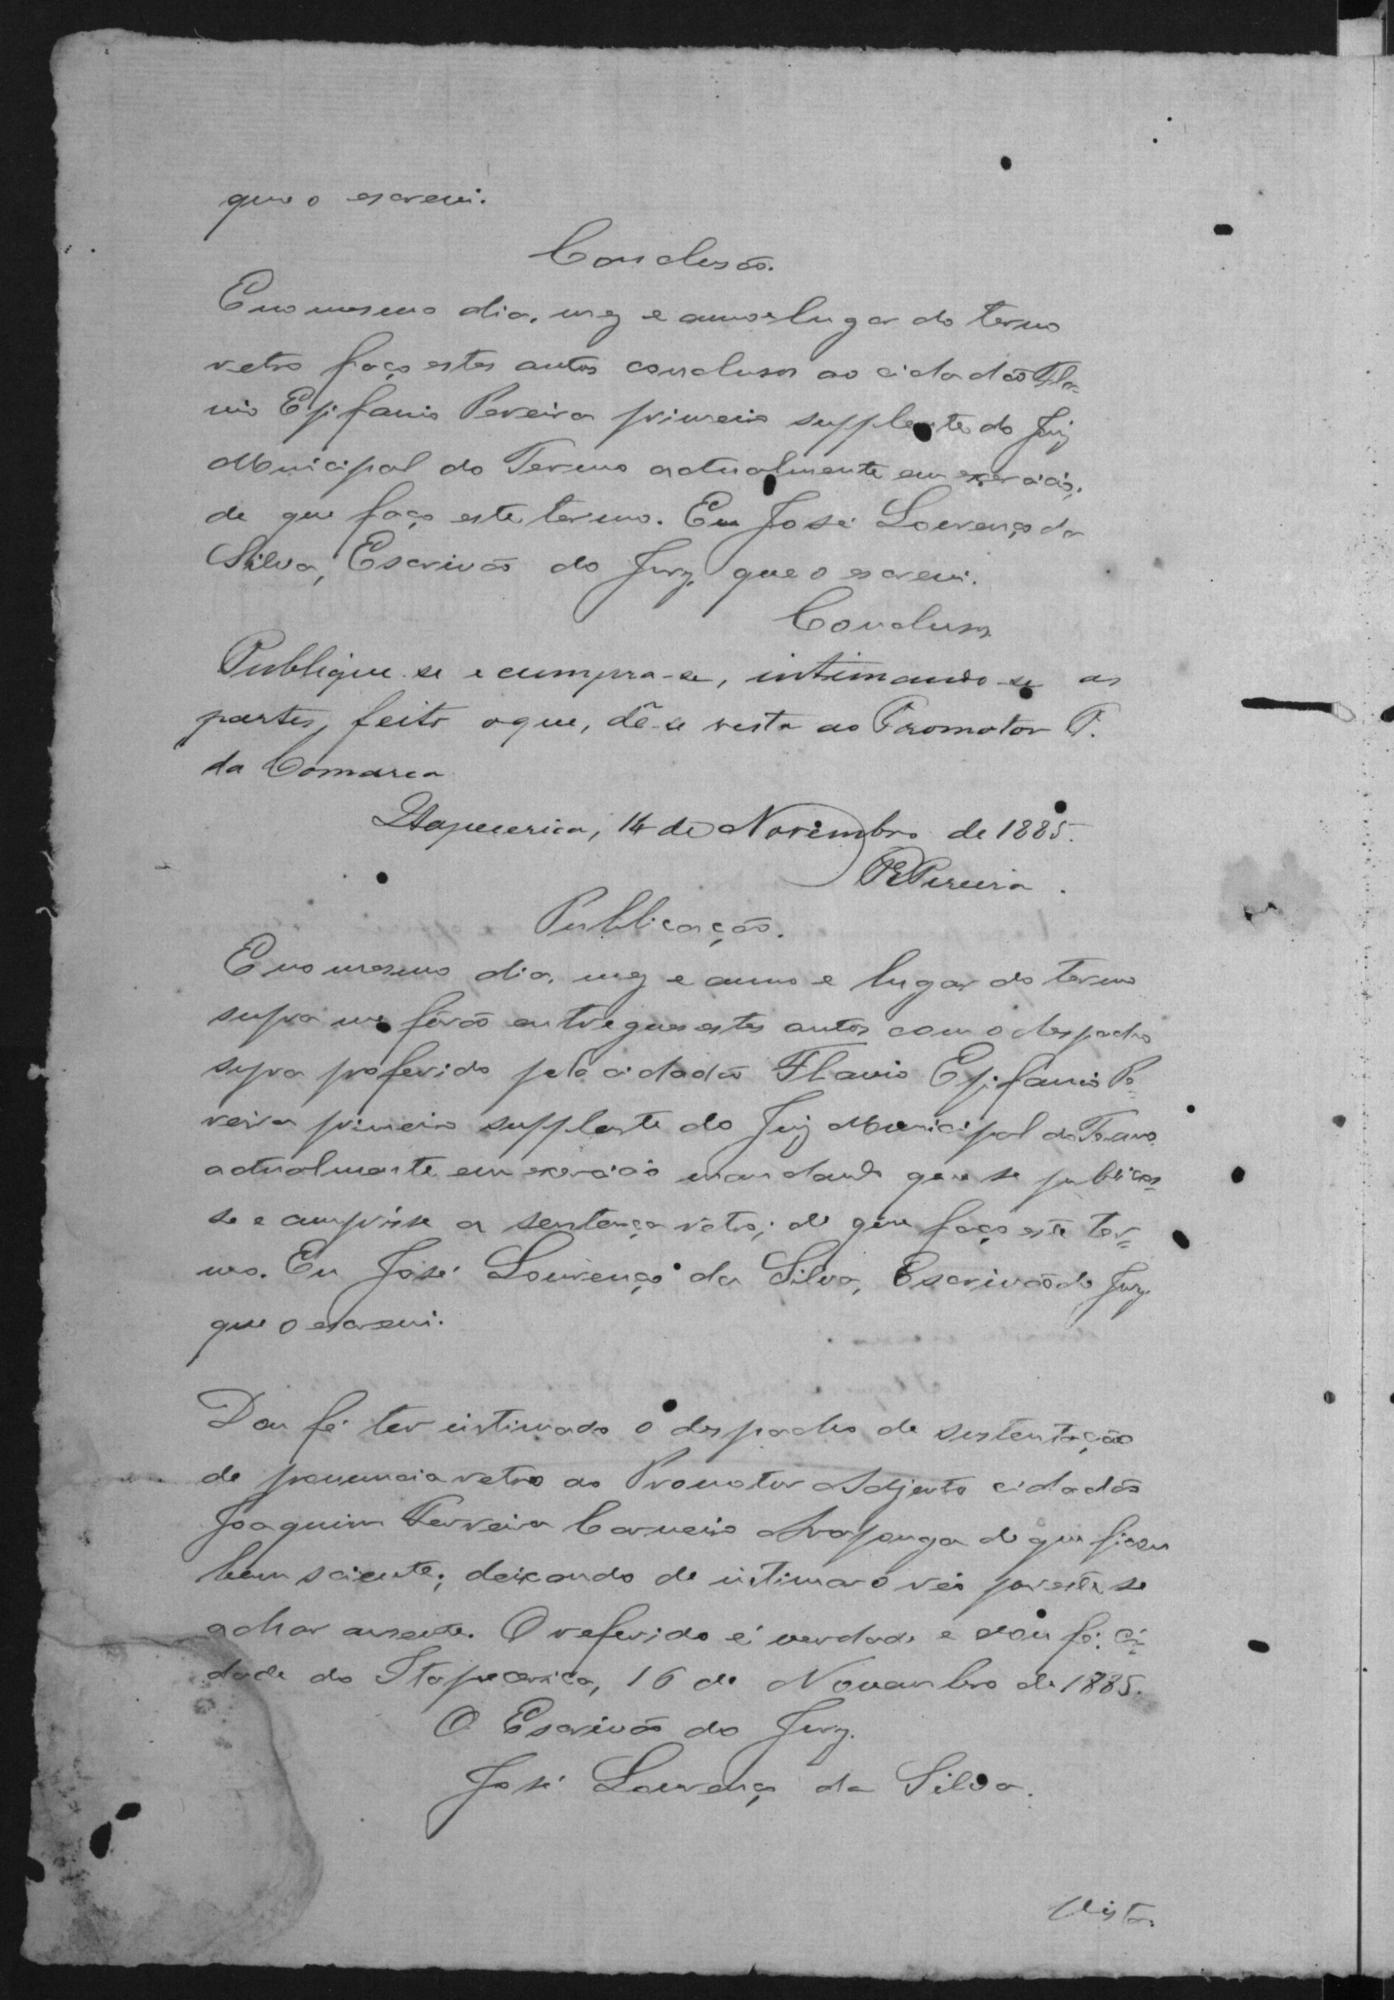 que o escrevi.
Conclusão.
E no mesmo dia, mez e anno e lugar do termo
retro faço estes autos conclusos ao cidadão Fla-
vio Epifanio Pereira primeiro supplente do Juiz
Municipal do Termo actualmente em exercicio,
de que faço este termo. Eu José Lourenço da
Silva, Escrivão do Jury que o escrevi.
Conclusos
Publique-se e cumpra-se, intimando-se as
partes, feito o que, dê-se vista ao Promotor P.
da Comarca
Itapecerica, 14 de Novembro de 1885.
Pereira.
Publicação.
E no mesmo dia, mez e anno e lugar do termo
supra me fôrão entregues estes autos com o despacho
supra proferido pelo cidadão Flavio Epifanio Pe=
reira primeiro supplente do Juiz Municipal do Termo
actualmente em exercicio mandando que se publicas=
se e cumprisse a sentença retro; de que faço este ter=
mo. Eu José Lourenço da Silva, Escrivão do Jury
que o escrevi.
Dou fé ter intimado o despacho de sustentação
de pronuncia retro ao Promotor Adjunto cidadão
Joaquim Ferreira Carneiro Araponga de que ficou
bem sciente; deixando de intimar o réo por este se
achar ausente. O referido é verdade e dou fé. Ci=
dade do Itapecerica, 16 de Novembro de 1885.
O Escrivão do Jury.
José Lourenço da Silva.
Vista